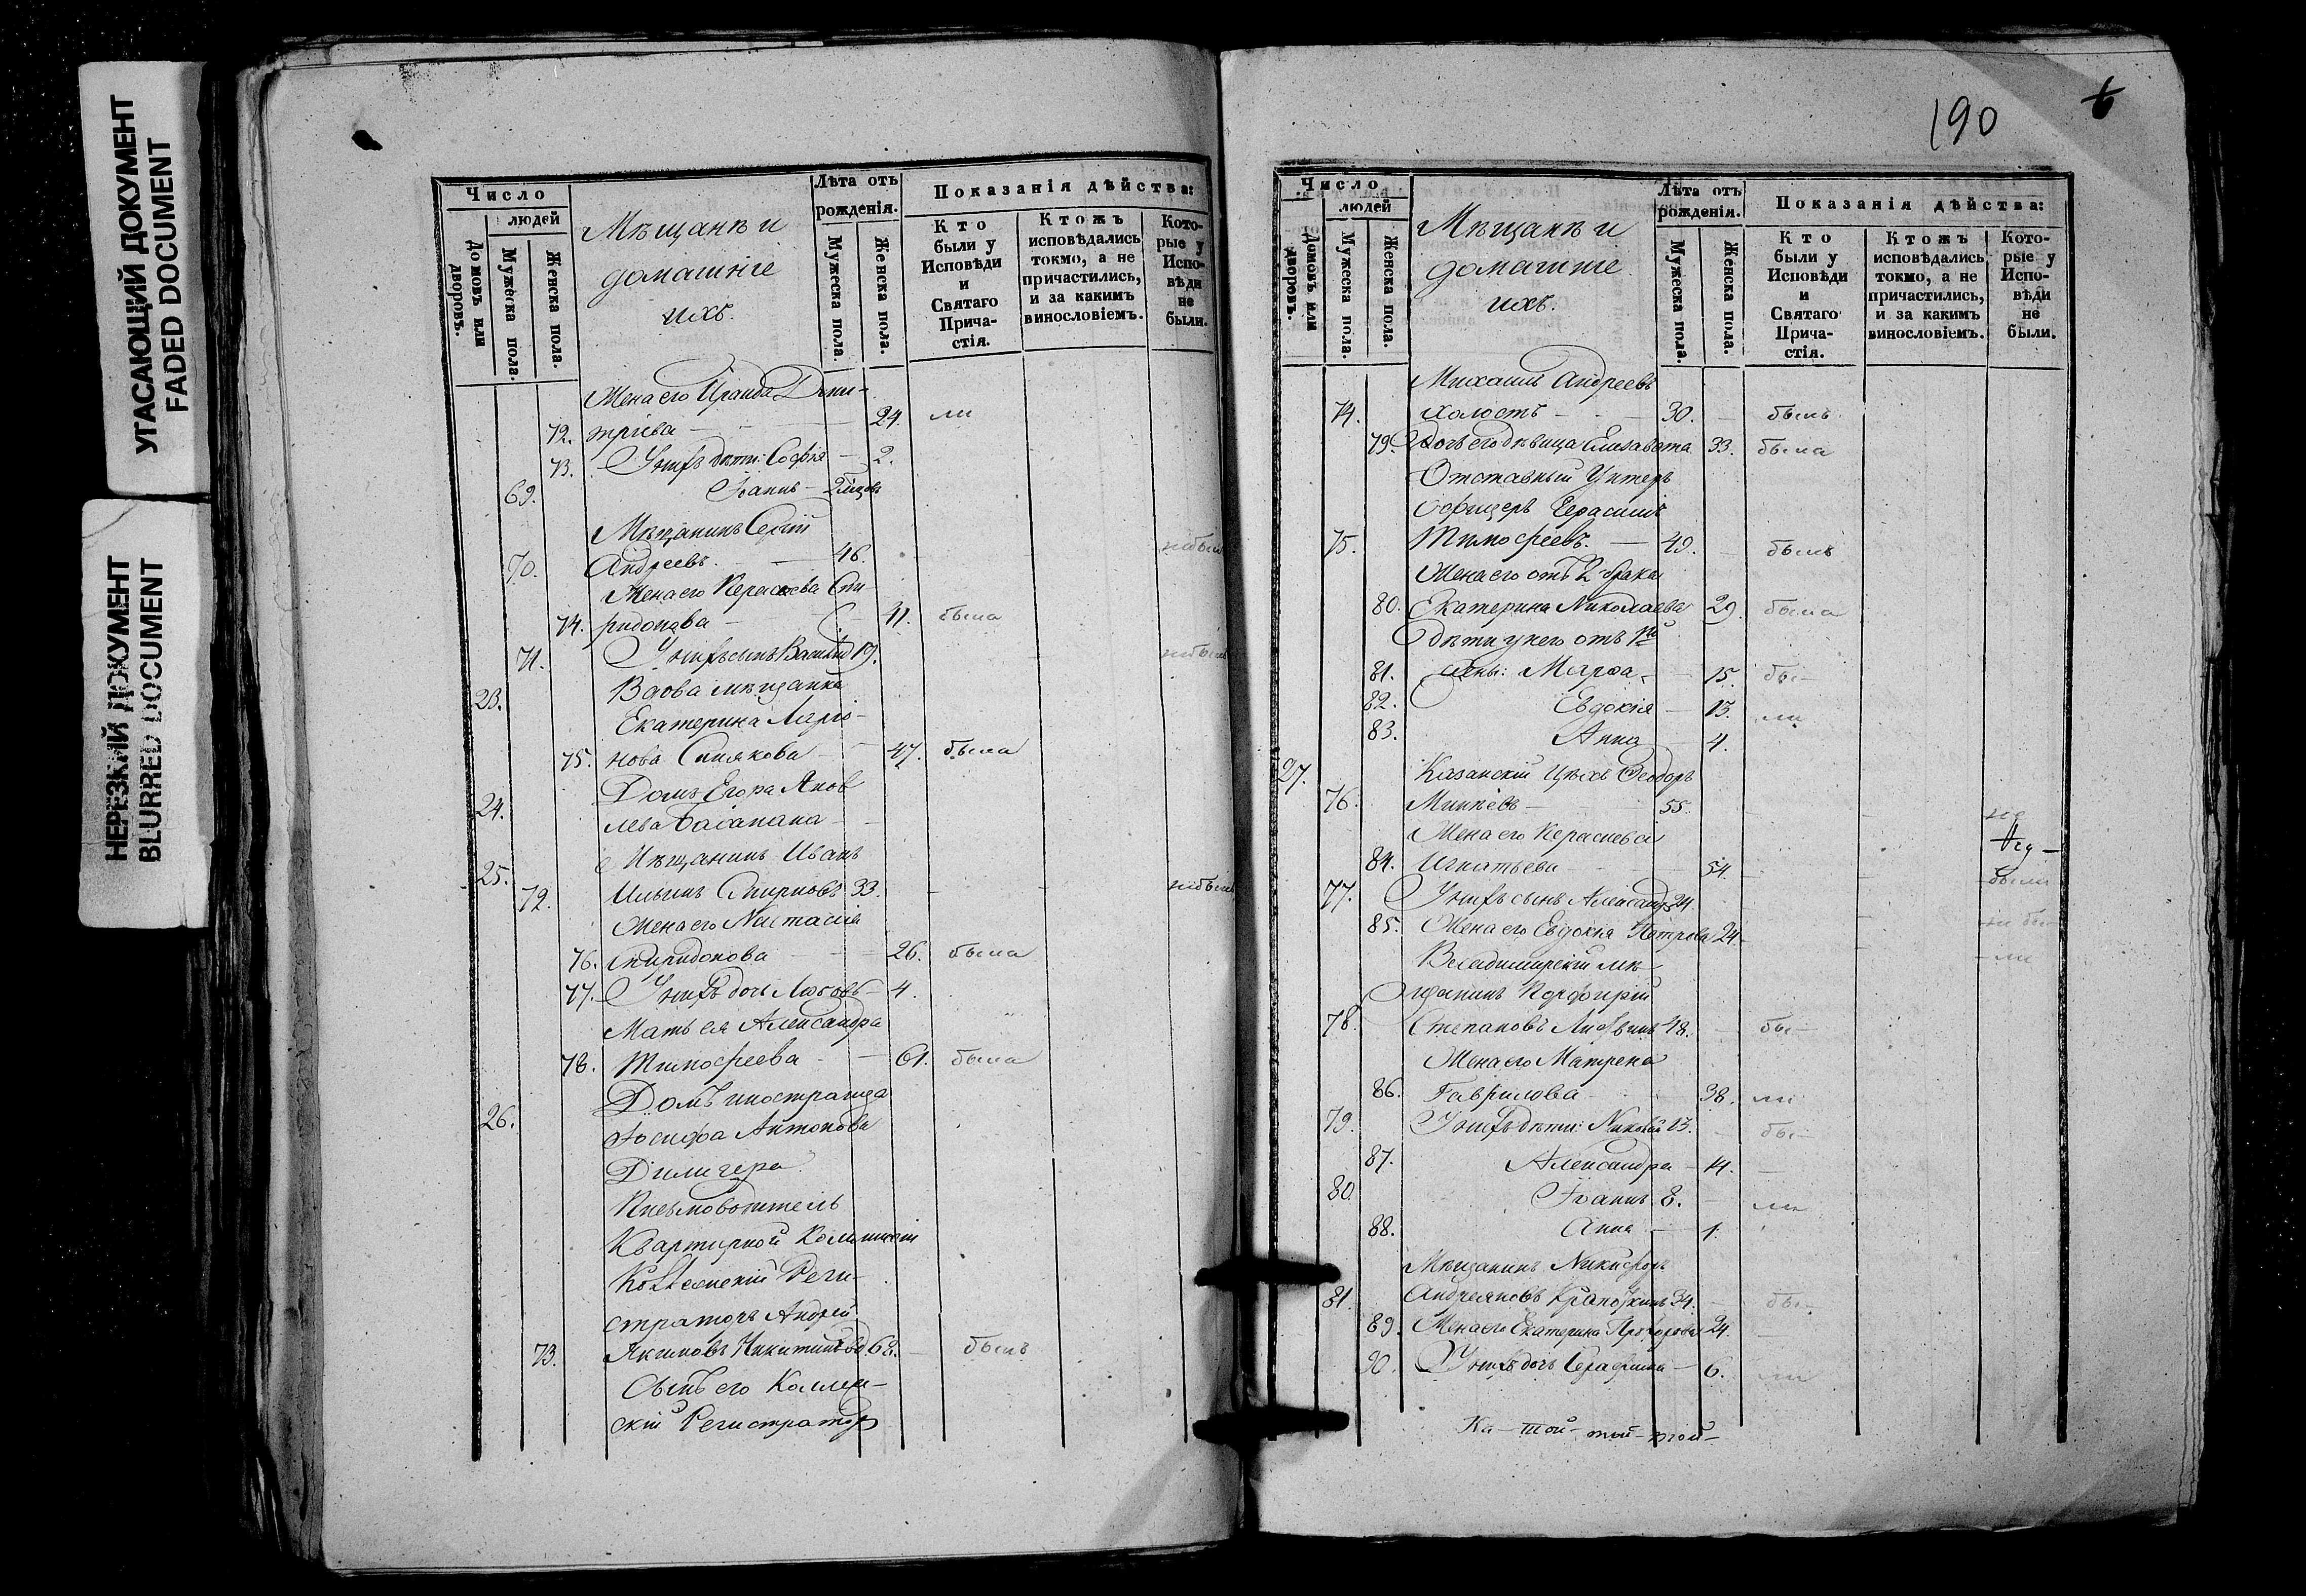 УГАСАЮЩИЙ ДОКУМЕНТ
FADED DOCUMENT
НЕРЕЗКИЙ ДОКУМЕНТ
BLURRED DOCUMENT
Число
людей
Домовъ или дворовъ.
Мужеска пола.
Женска пола.
Мѣщане и
домашніе
ихъ.
Лѣта отъ
рожденія.
Мужеска пола.
Женска пола.
Показанія дѣйства:
Кто
были у
Исповѣди
и
Святаго
Прича-
стія.
Ктожъ
исповѣдались
токмо, а не
причастились,
и за какимъ
винословіемъ.
Кото-
рые у
Испо-
вѣди
не
были.
Жена его Ираида Дми-
72. тріева 24. ли
73. У нихъ дѣти: Софія 2.
69. Іоаннъ
Мѣщанинъ Сергій
70. Андреевъ. 46. небылъ
Жена его Спи-
74. ридонова 41. была
71. У нихъ сынъ Василій 19. небылъ
23. Вдова мѣщанка
Екатерина Ларіо-
75. нова 47. была
Домъ Егора Яков
24. лева
25. Мѣщанинъ Иванъ
72. Ильинъ Смирновъ 33. небылъ
Жена его Настасія
76. Спиридонова 26. была
77. У нихъ дочь Любовь 4.
Мать ея Александра
78. Тимофеева 61. была
Домъ иностранца
26. Іосифа Антонова
Дилигера
Письмоводитель
Квартирной Коммисіи
Коллежскій Реги-
страторъ Андрей
73. Якимовъ 68. былъ
Сынъ его Коллеж-
скій Регистраторъ
190
6
Число
людей
Домовъ или дворовъ.
Мужеска пола.
Женска пола.
Мѣщане и
домашніе
ихъ.
Лѣта отъ
рожденія.
Мужеска пола.
Женска пола.
Показанія дѣйства:
Кто
были у
Исповѣди
и
Святаго
Прича-
стія.
Ктожъ
исповѣдались
токмо, а не
причастились,
и за какимъ
винословіемъ.
Кото-
рые у
Испо-
вѣди
не
были.
Михаилъ Андреевъ
74. холостъ 30. былъ
79. Дочь его дѣвица Елизавета 33. была
Отставный Унтеръ
Офицеръ Герасимъ
75. Тимофеевъ. 49. былъ
Жена его отъ 2 брака
80. Екатерина Николаева 29. была
Дѣти у него отъ 1й
81. жены: Марфа 15. бы-
82. Евдокія 13. ли
83. Анна 4.
27. Казанскій Цехъ Феодоръ
76. 55.
Жена его
84. Игнатьева 54. были
77. У нихъ сынъ Александръ 24.
85. Жена его Евдокія Петрова 24 не бы-
Владимирскій мѣ- ли
щанинъ Порфирій
78. Степановъ 48. бы-
Жена его Матрена
86. Гаврилова 38. ли
79. У нихъ дѣти: Николай 13. бы-
87. Александра 14.
80. Іоаннъ 8. ли
88. Анна 1.
Мѣщанинъ Никифоръ
81. 34. бы-
89. Жена его Екатерина 24.
90. У нихъ дочь Серафима 6. ли